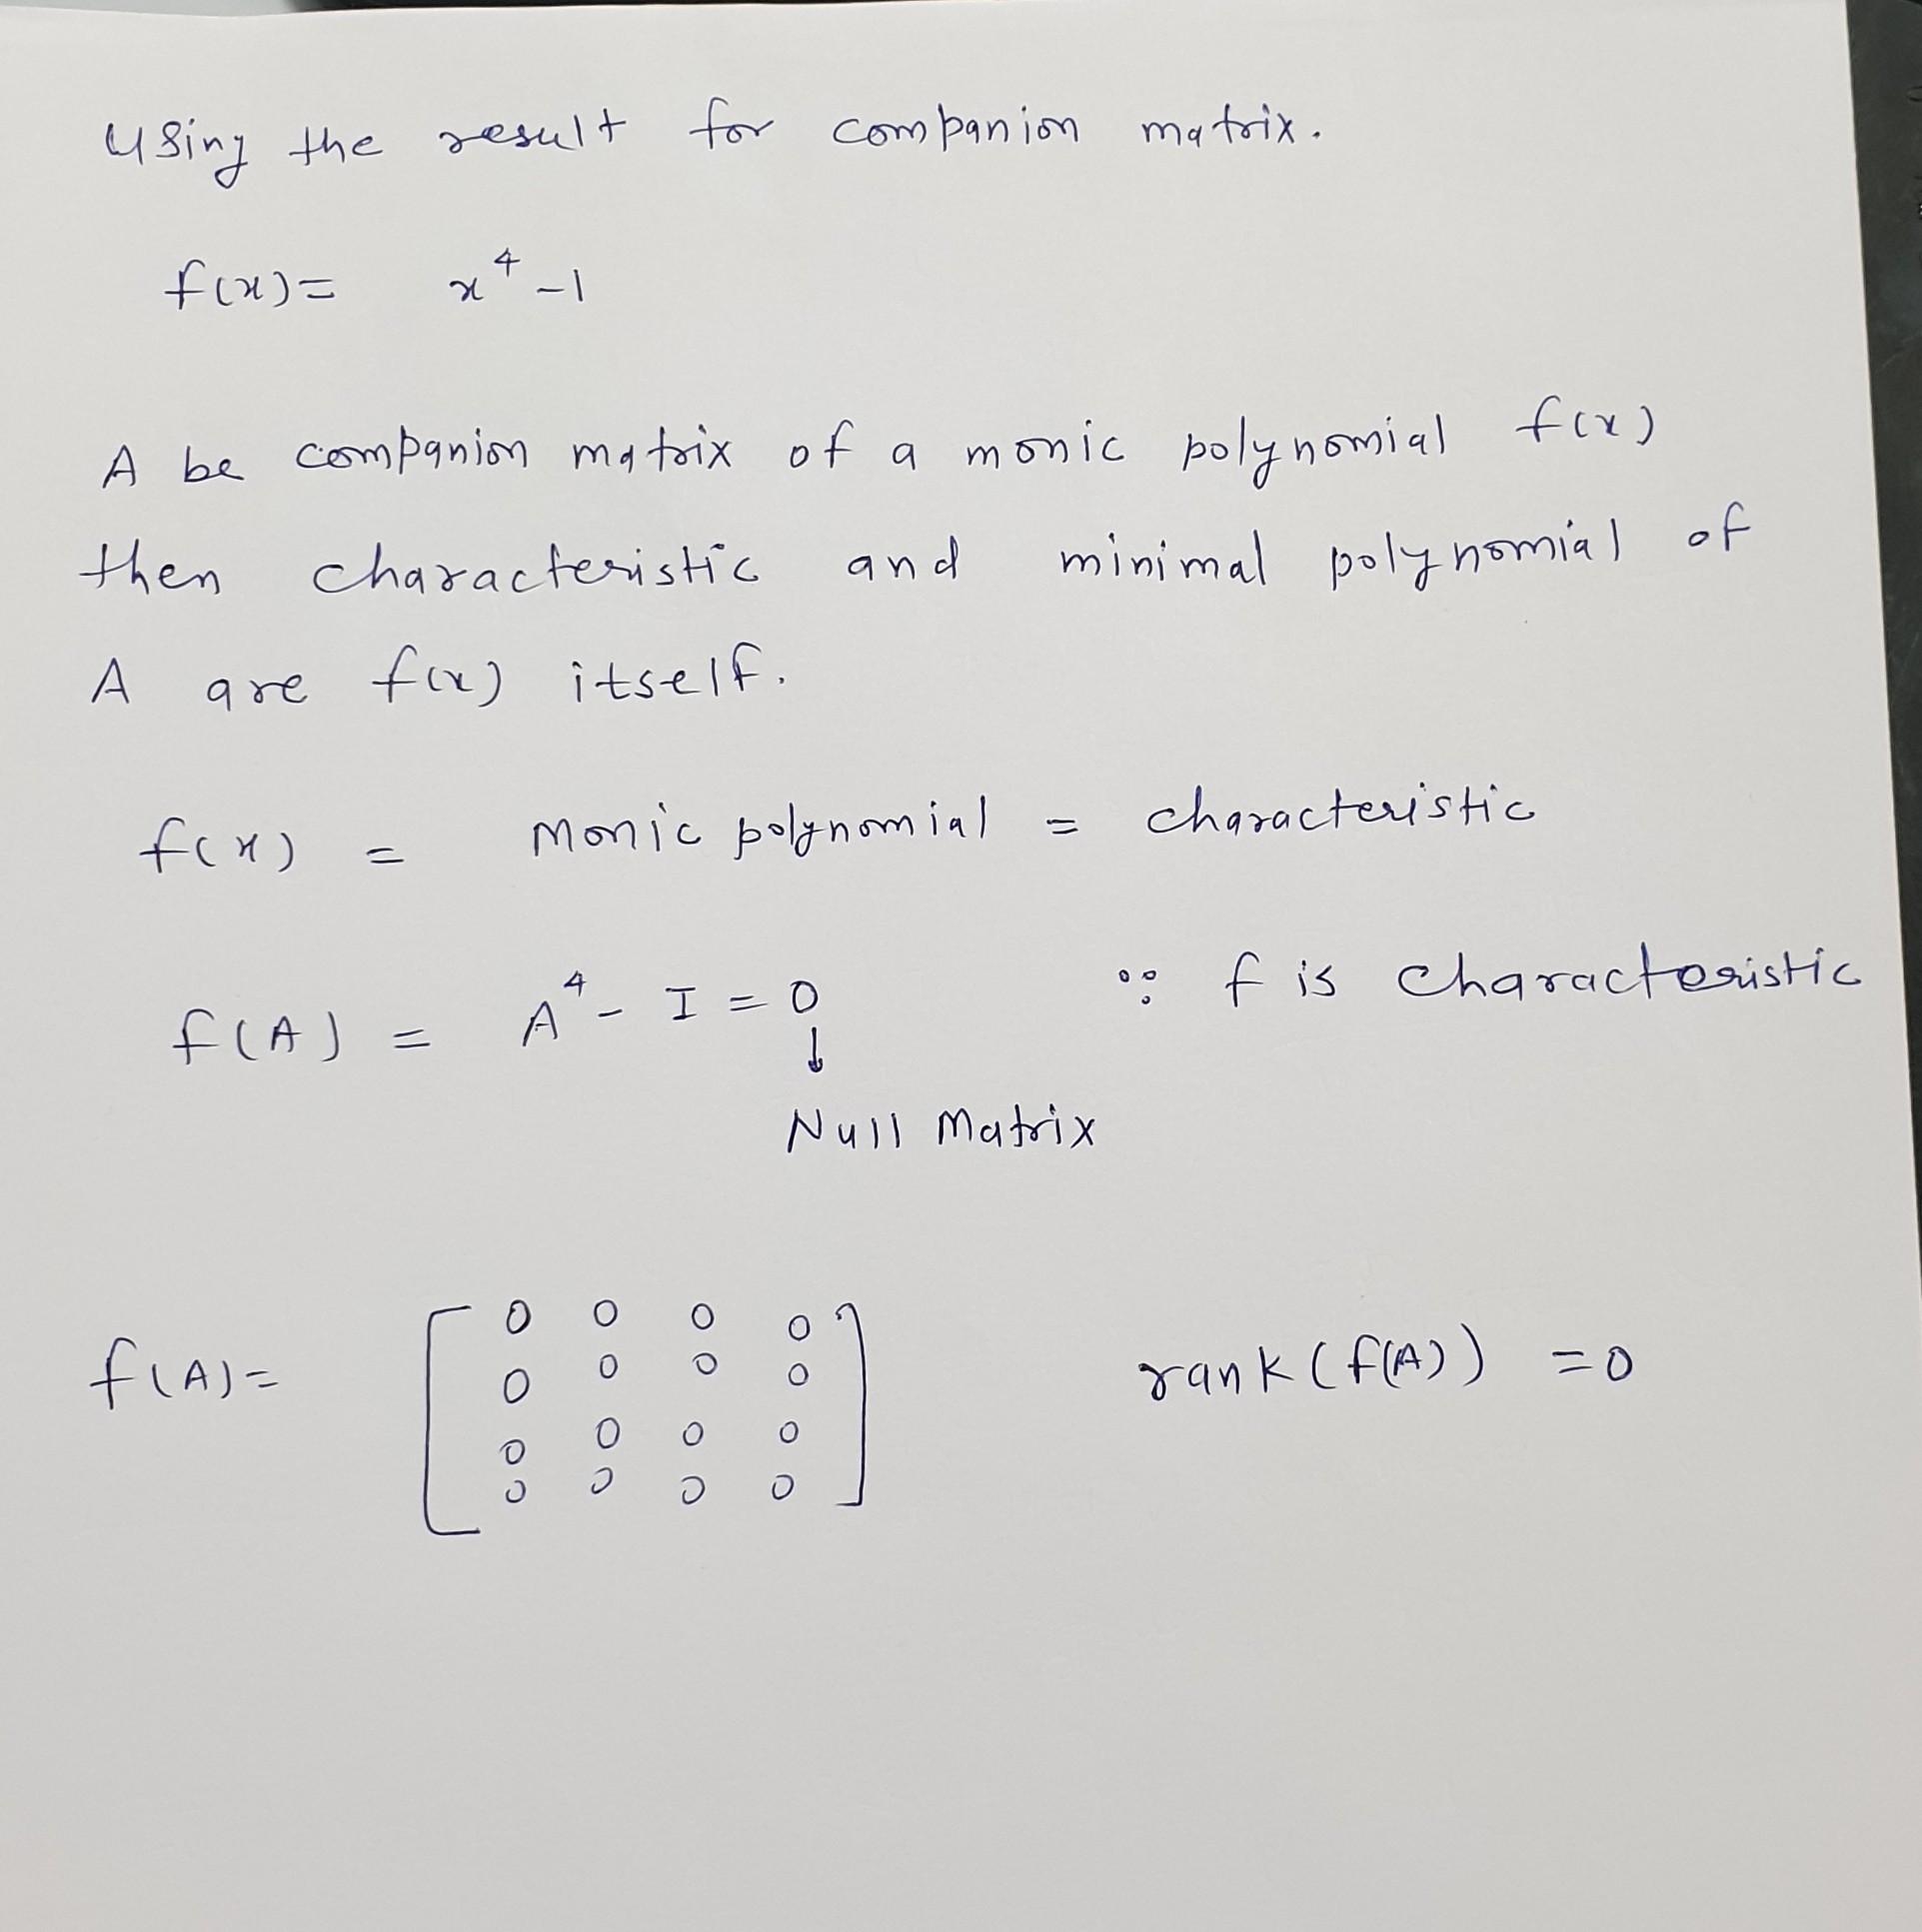 Using the result for companion matrix.
f(x) = x⁴ - 1
A be companion matrix of a monic polynomial f(x)
then characteristic and minimal polynomial of
A are f(x) itself.
f(x) = Monic polynomial = characteristic
f(A) = A⁴ - I = 0 ∵ f is characteristic
↓
Null Matrix
f(A) = [ 0 0 0 0 rank (f(A)) = 0
0 0 0 0
0 0 0 0
0 0 0 0 ]